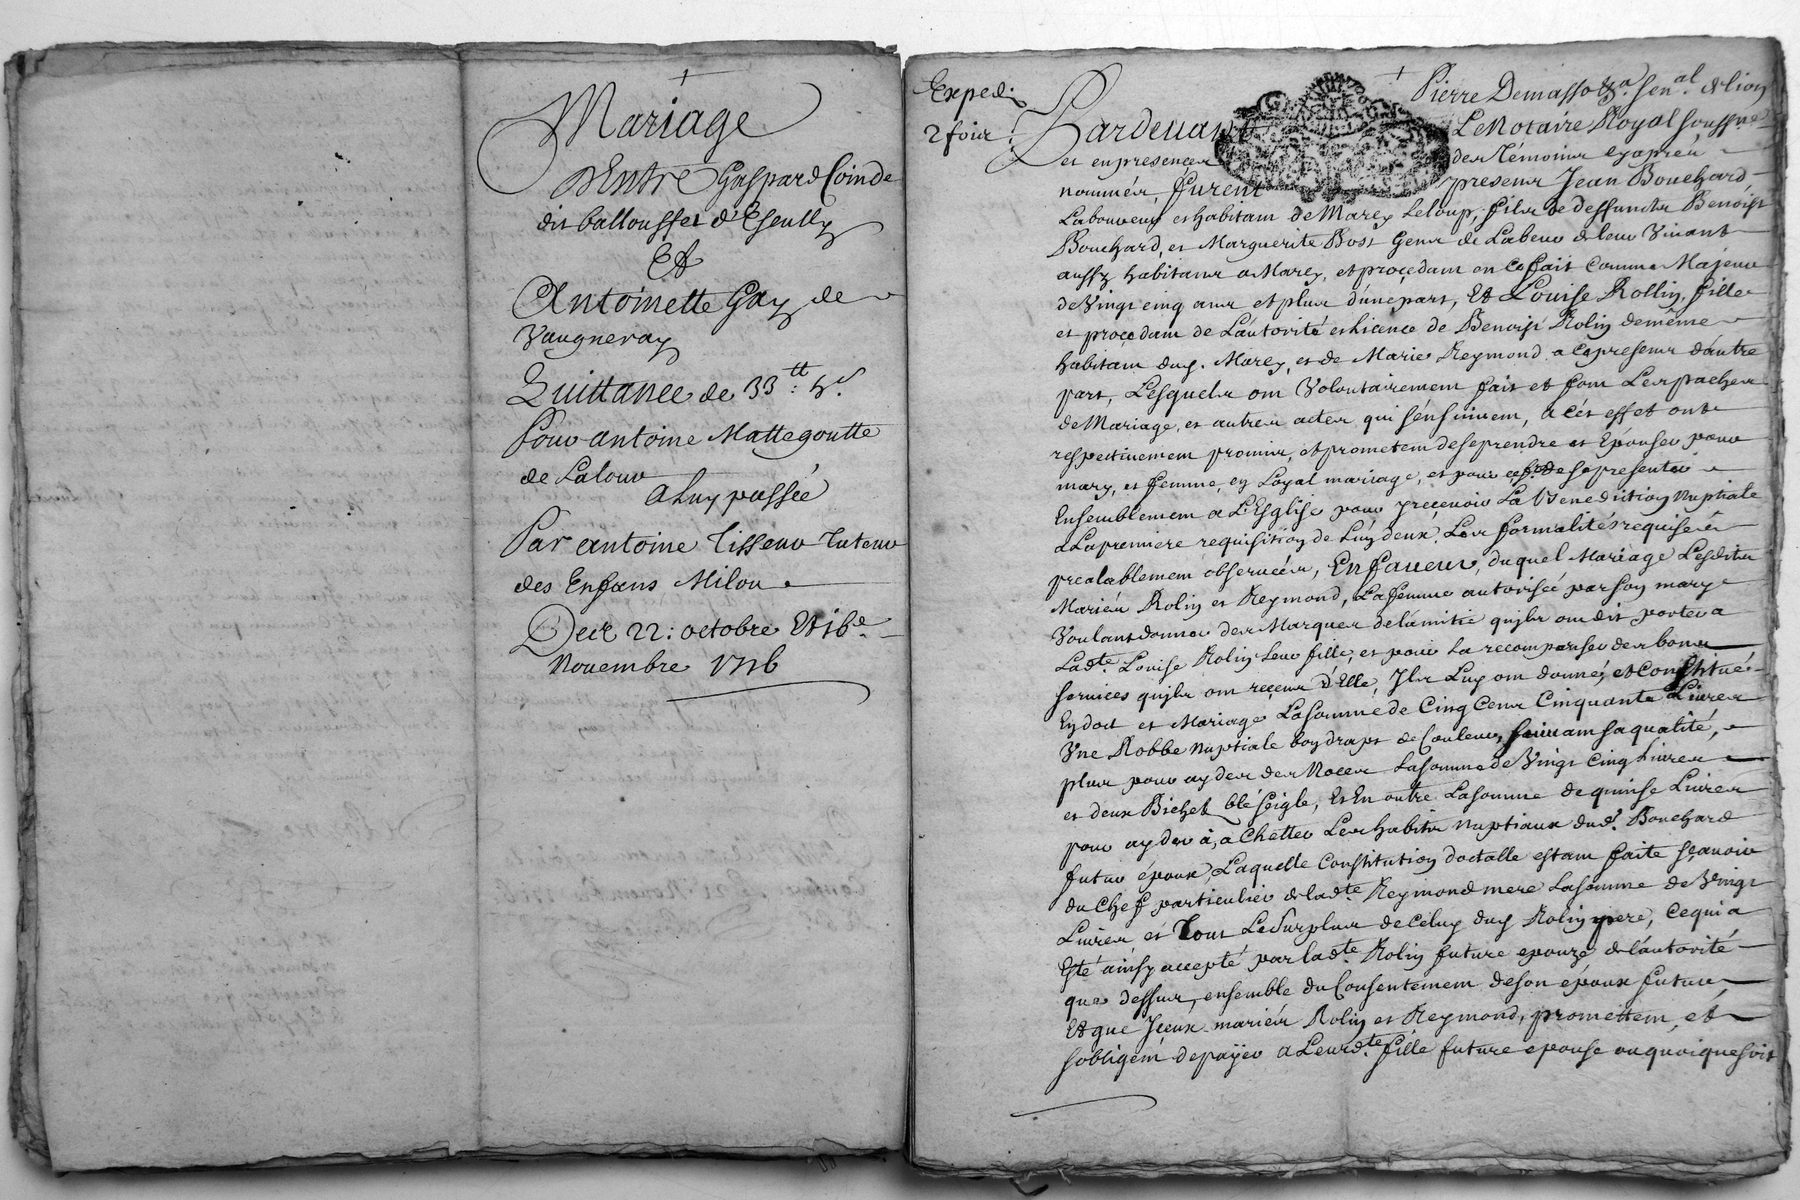 Mariage
D'Entre Gaspard Coinde
dit ballousset d'Escully
Et
Antoinette Gay de
Vaugneray
Quittance de 33tt: 5s
Pour antoine Mattegoutte
de Latour
a luy passée
Par antoine Tisseur Tuteur
des Enfans Milou
Des 22: octobre Et 16e
Novembre 1716
Exped:
2 fois:
Pierre Demasso Senal de lion
Pardevant Le Notaire Royal soussigné
et en presence des Témoins cy après
nommés, furent presens Jean Bouchard
Laboureur et habitant de Marcy Leloup, fils de deffuncts Benoist
Bouchard, et Marguerite Bost Gens de Labeur de leur Vivant
aussy habitans a Marcy, et proçedant en ce fait comme Majeur
de Vingt cinq ans et plus d'une part, Et Louise Rollin, fille
et proçedant de L'autorité et licence de Benoist Rolin de même
habitant dud. Marcy, et de Marie Reymond a ce presens d'autre
part, Lesquels ont Volontairement fait et font Les paches
de Mariage, et autres actes qui s'ensuivent, a cét effet ont
respectivement promis, et promettent de se prendre et Epouser pour
mary, et femme, en Loyal mariage, et pour de se presenter
Ensemblement a L'Esglise pour y reçevoir La Benediction Nuptiale
a La premiere requisition de L'un d'eux, Les formalités requises
prealablement observées, En faveur, duquel Mariage Lesdits
Mariés Rolin et Reymond, La femme autorisée par son mary
Voulant donner des Marques de l'amitié qu'ils ont dit porter a
Ladte Louise Rolin leur fille, et pour La recompenser des bons
services qu'ils ont reçeus d'Elle, Ils Luy ont donné, et Constitué
En dot et Mariage La somme de Cinq Cens Cinquante Livres
Une Robbe nuptiale bon draps de Couleur, suivant sa qualité,
plus pour ayder des Noces La somme de Vingt Cinq Livres
et deux Bichets blé seigle, Et En outre La somme de quinse Livres
pour ayder à, achetter Les habits Nuptiaux dudt Bouchard
futur époux, Laquelle Constitution doctalle estant faite sçavoir
du Chef particulier de ladte Reymond mere La somme de Vingt
Livres, et Tout Le Surplus de Celuy dud Rolin pere, Ce qui a
Esté ainsy accepté par ladte Rolin future epouze de l'autorité
que dessus, ensemble du Consentement de son époux futur,
Et que Jceux mariés Rolin et Reymond, promettent, et
s'obligent de payer a Leurdte fille future epouse ou quoique soit